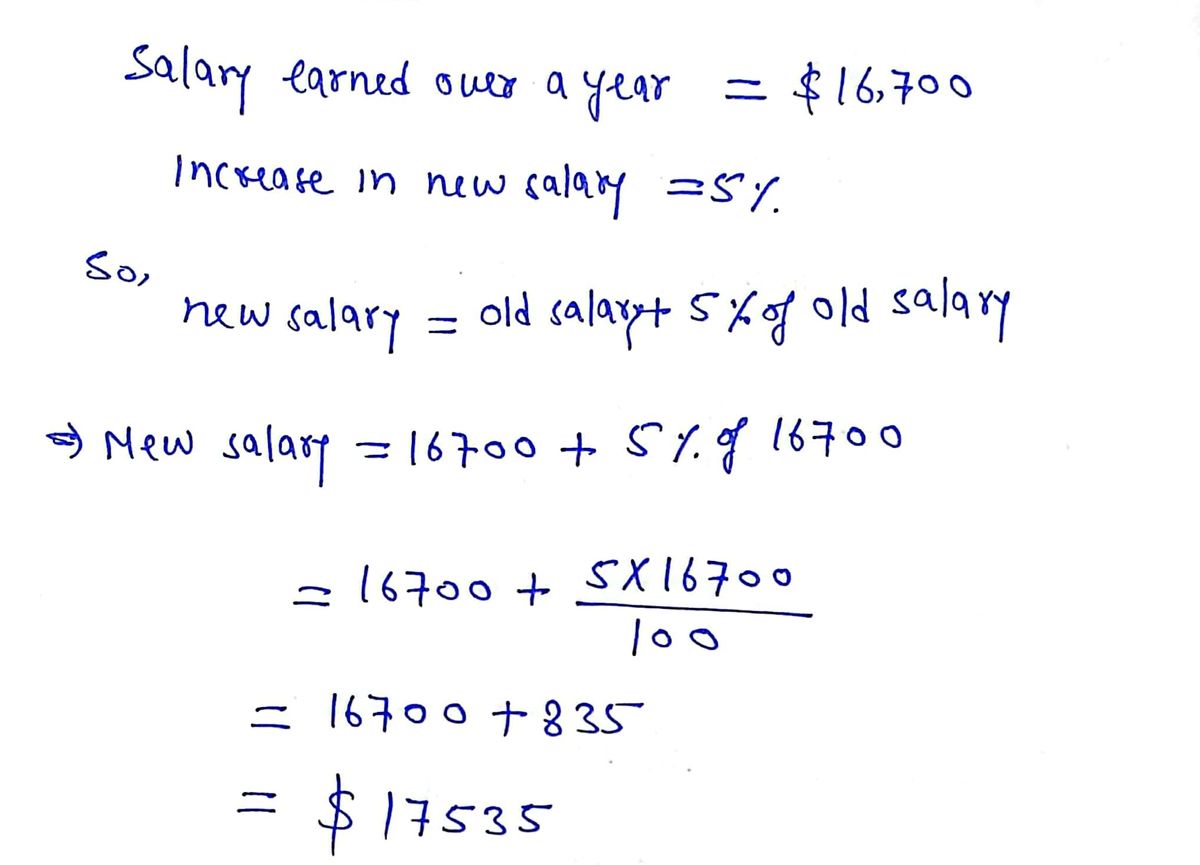 Salary earned over a year = $16,700
Increase in new salary = 5%
So,
new salary = old salary + 5% of old salary
⇒ New salary = 16700 + 5% of 16700
= 16700 + 5X16700
100
= 16700 + 835
= $17535